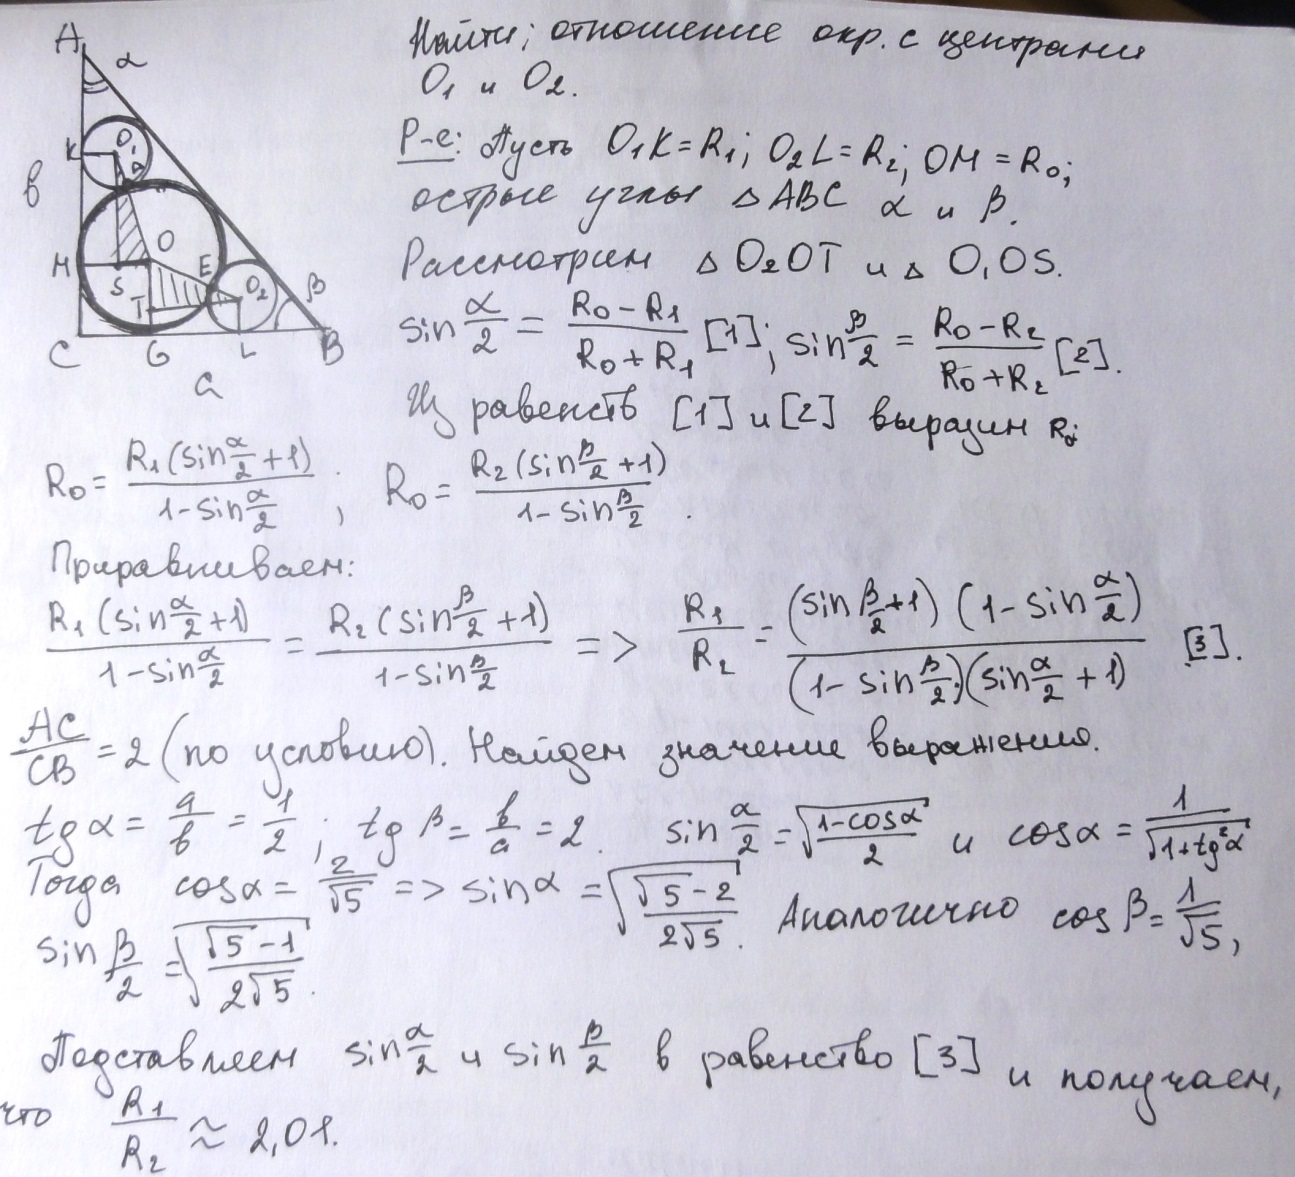 Найти: отношение окр. с центрами
O₁ и O₂.
A
α
K
O₁
D
в
M
O
S
E
T
O₂
β
C
G
L
B
a
Р-е: Пусть O₁K = R₁; O₂L = R₂; OM = R₀;
острые углы △ABC α и β.
Рассмотрим △ O₂OT и △ O₁OS.
sin α/2 = (R₀ - R₁)/(R₀ + R₁) [1]; sin β/2 = (R₀ - R₂)/(R₀ + R₂) [2].
Из равенств [1] и [2] выразим R₀:
R₀ = R₁(sin α/2 + 1)/(1 - sin α/2); R₀ = R₂(sin β/2 + 1)/(1 - sin β/2).
Приравниваем:
R₁(sin α/2 + 1)/(1 - sin α/2) = R₂(sin β/2 + 1)/(1 - sin β/2) => R₁/R₂ = (sin β/2 + 1)(1 - sin α/2)/((1 - sin β/2)(sin α/2 + 1)) [3].
AC/CB = 2 (по условию). Найдем значение выражения.
tg α = a/в = 1/2; tg β = в/a = 2. sin α/2 = √((1 - cos α)/2) и cos α = 1/√(1 + tg²α)
Тогда cos α = 2/√5 => sin α = √((√5 - 2)/(2√5)). Аналогично cos β = 1/√5,
sin β/2 = √((√5 - 1)/(2√5)).
Подставляем sin α/2 и sin β/2 в равенство [3] и получаем,
что R₁/R₂ ≈ 2,01.